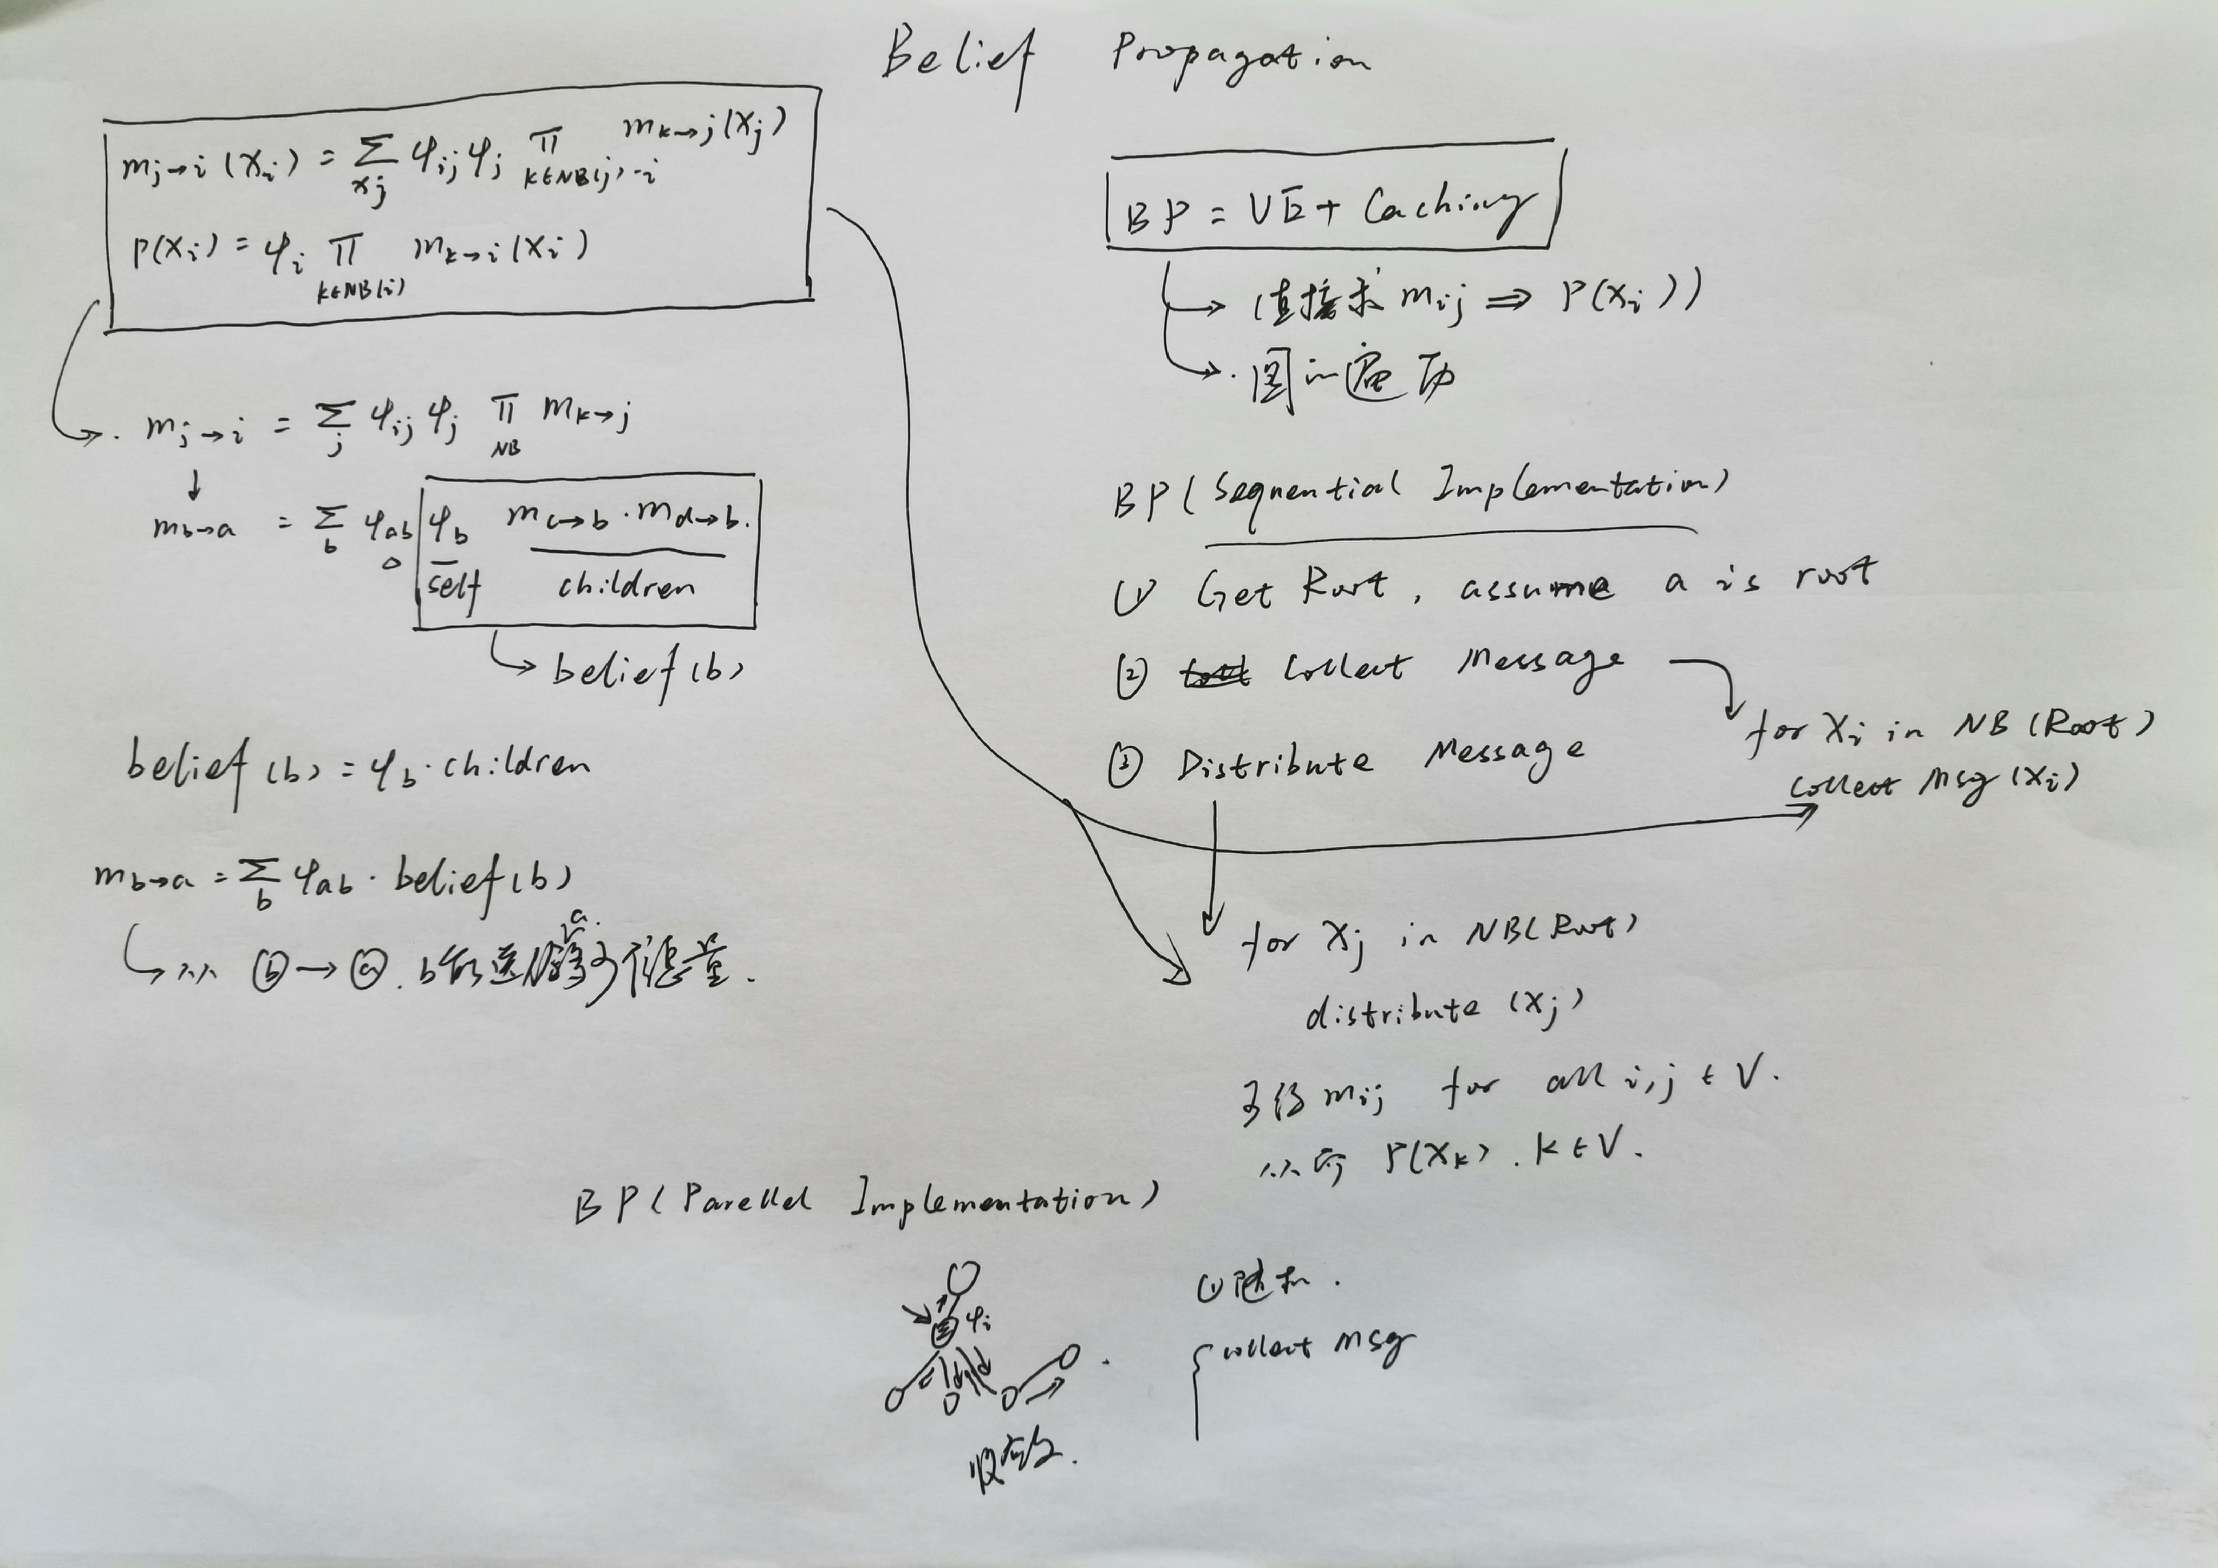 Belief Propagation
m_{j→i}(x_i) = Σ_{x_j} φ_{ij} φ_j Π_{k∈NB(j)-i} m_{k→j}(x_j)
P(x_i) = φ_i Π_{k∈NB(i)} m_{k→i}(x_i)
m_{j→i} = Σ_j φ_{ij} φ_j Π_{NB} m_{k→j}
m_{b→a} = Σ_b φ_{ab} φ_b m_{c→b} · m_{d→b}.
self children
belief(b)
belief(b) = φ_b · children
m_{b→a} = Σ_b φ_{ab} · belief(b)
从 ⓑ → ⓐ . b 信息量.
BP = VE + Caching
(直接求 m_{ij} ⇒ P(x_i))
图的遍历
BP (Sequential Implementation)
① Get Root, assume a is root
② Collect Message
for x_i in NB(Root)
collect Msg(x_i)
③ Distribute Message
for x_j in NB(Root)
distribute (x_j)
可得 m_{ij} for all i,j ∈ V.
P(x_k). k ∈ V.
BP (Parellel Implementation)
φ_i
① 随机.
collect msg